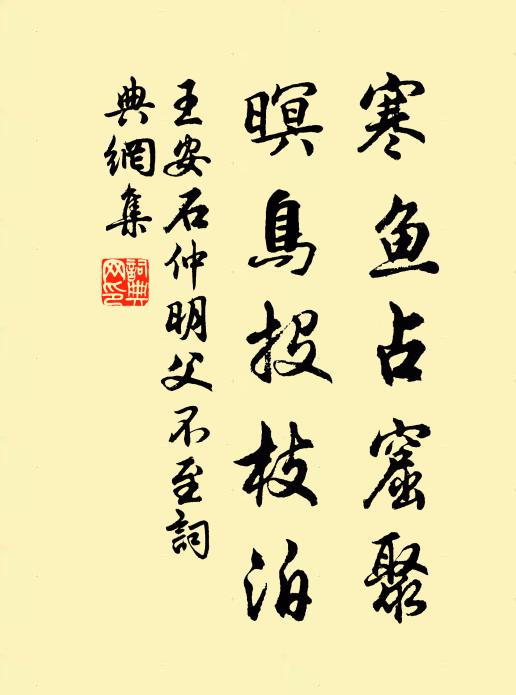 寒鱼占窟聚
暝鳥投枝泊
王安石仲明父不至詞
典網集
詞典网印